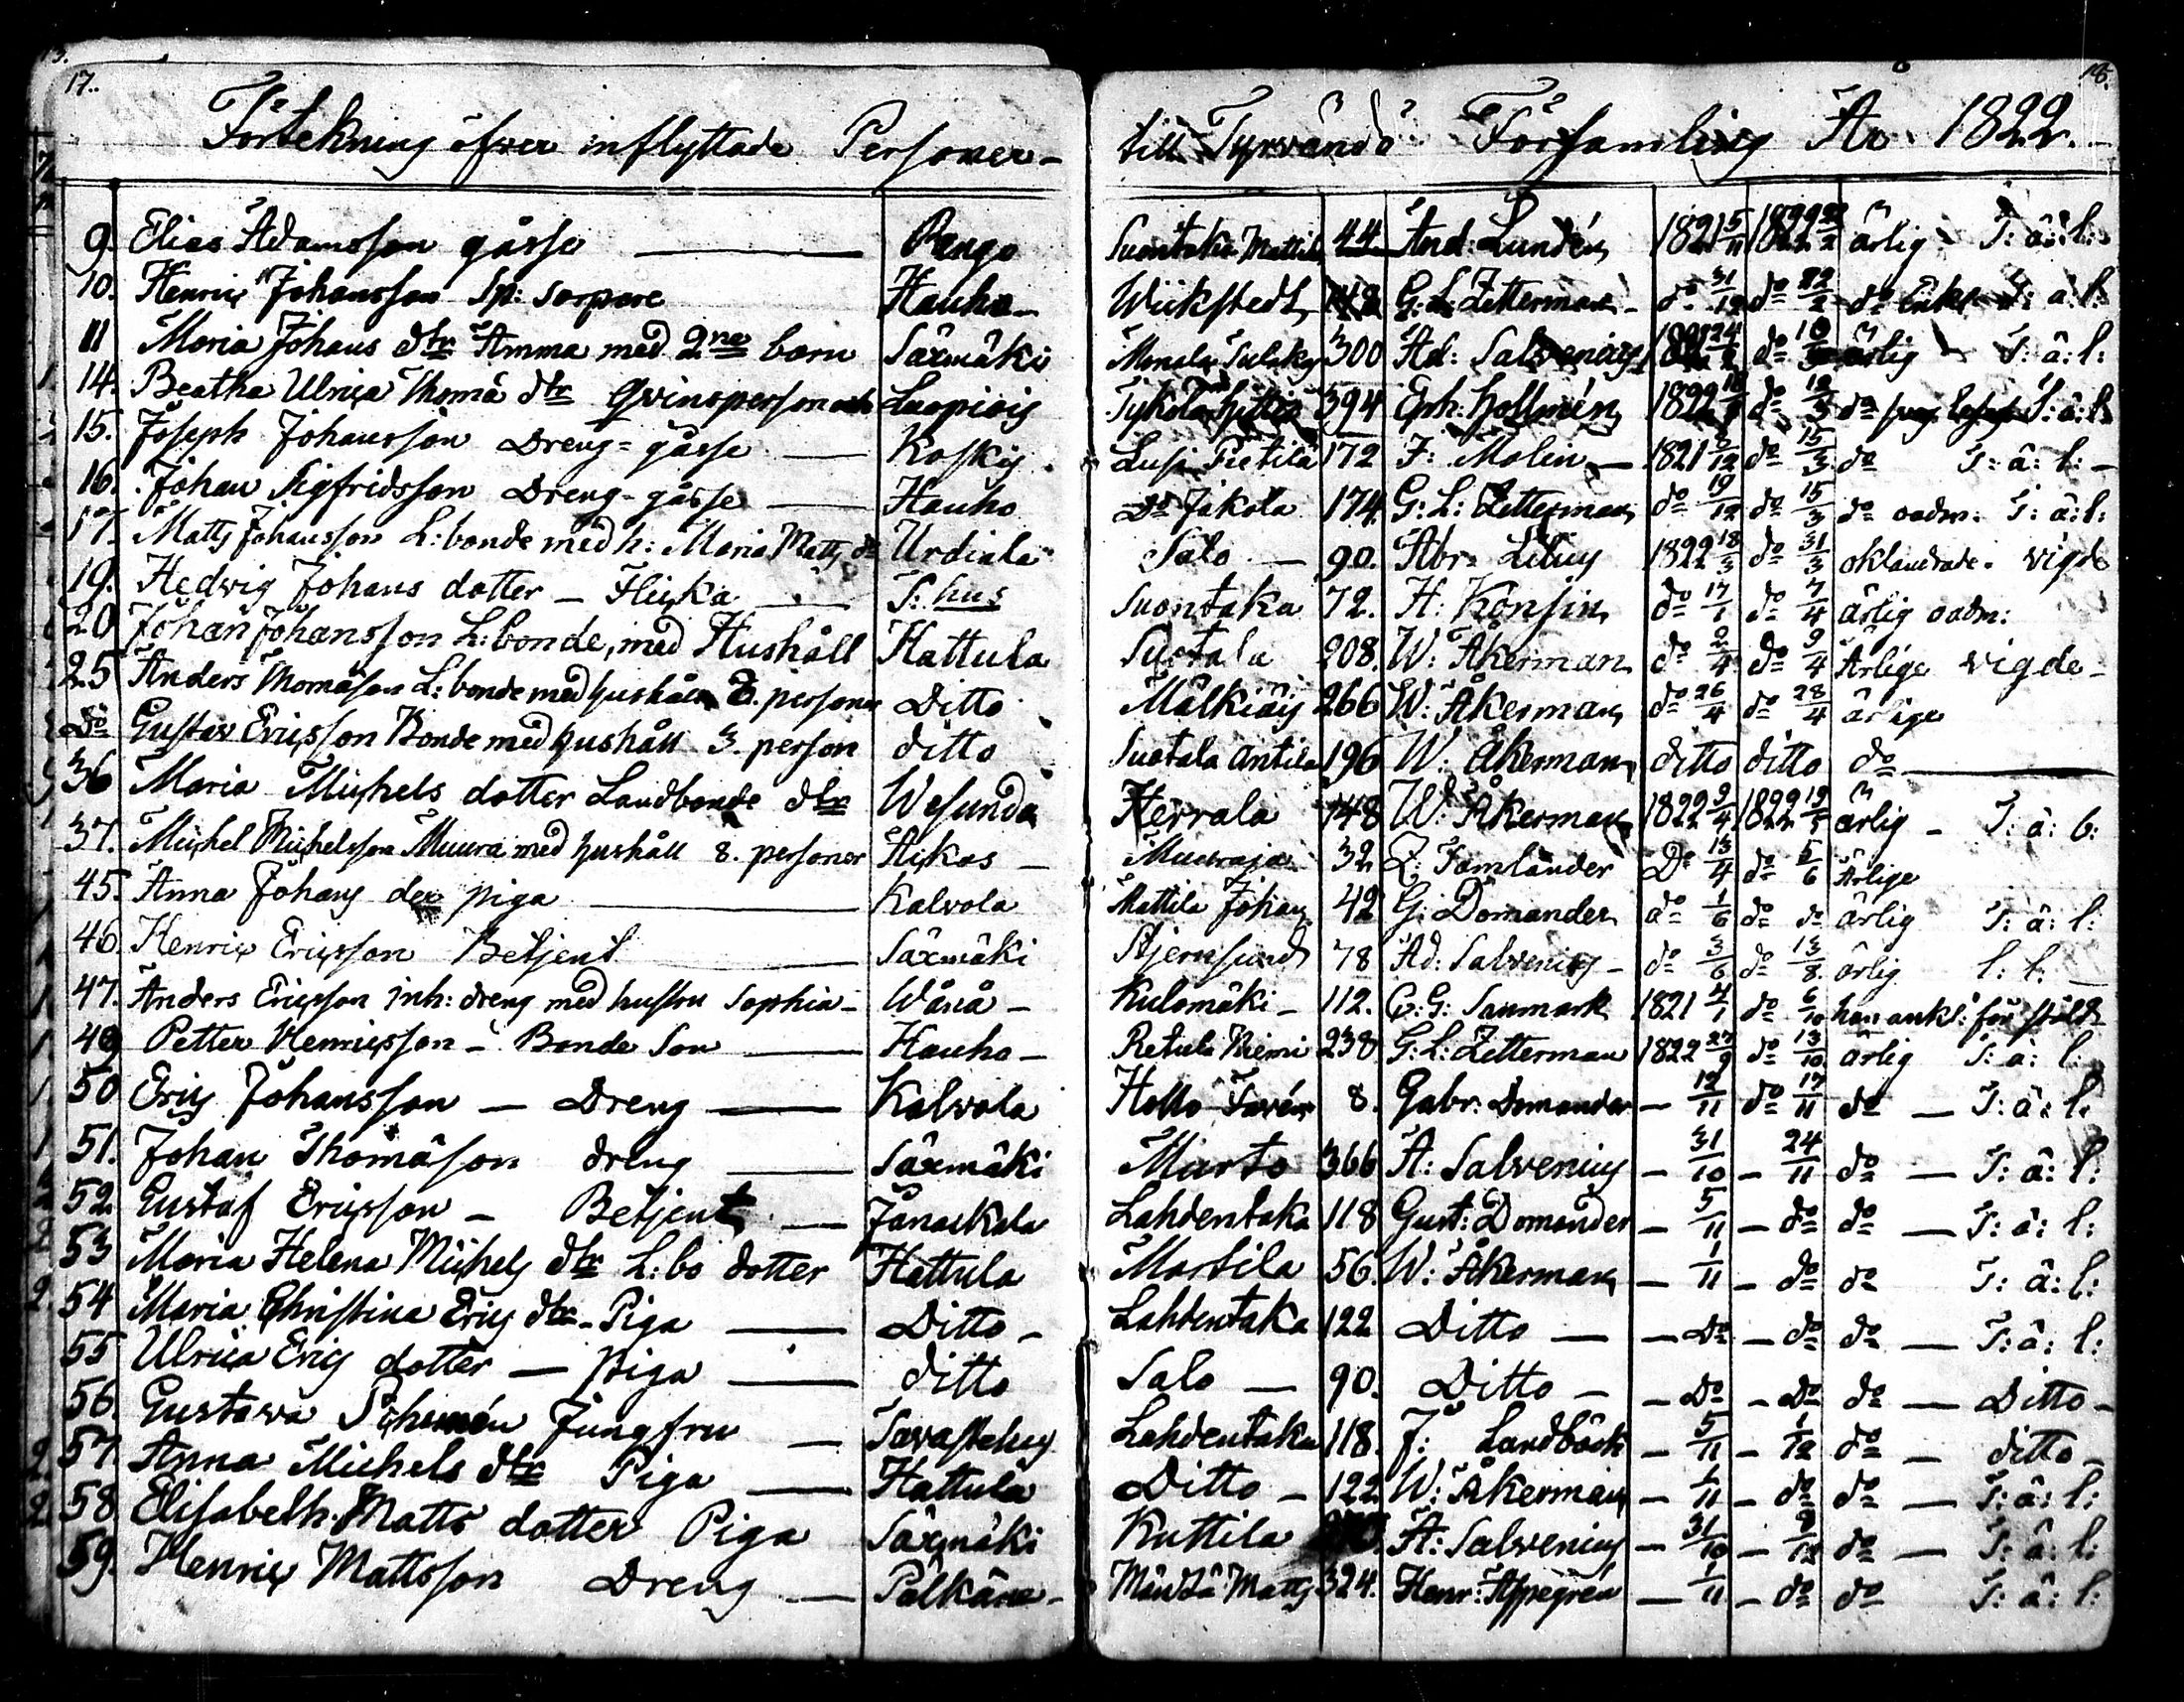 17.
18.
Förtekning öfver inflyttade Personer - till Tyrvändö Församling År 1822.
9. Elias Adamsson gåsse — Rengo Suontaka Mattila 44 And: Lundén 1821 5/11 1822 22/2 ärlig S: ä: l:
10. Henric Johansson Sp: Sorpare Hauho - Wiikstedt G: L: Zetterman - do 31/12 do 22/2 do S: ä: l:
11 Maria Johans dtr Amma med 2ne barn Säxmäki 300 Ad: Salvenius do ärlig S: ä: l:
14. Beatha Ulrica Thomä dtr Qvinsperson Loopiois 394 Eph: Hollmén 1822 do 12/3 do S: ä: l:
15. Joseph Johansson Dreng-gåsse — Koskis Lusi Pietilä 172 F: Molin — 1821 3/12 do 15/3 do S: ä: l: -
16. Johan Sigfridsson Dreng-gåsse — Hauho Do Jakola 174. G: L: Zetterman do 19/12 do 15/3 do oadm: S: ä: l:
17. Matts Johansson L: bonde med h: Maria Matts dr Urdiala Salo — 90. Abr: Lilius 1822 18/3 do 31/3 oklandrade. vigde
19. Hedwig Johans dotter — Flicka — S: hus Suontaka 72. H: Konsin do 17/1 do 7/4 ärlig oadm:
20 Johan Johansson L: bonde, med Hushåll Hattula Suotala 208. W: Åkerman do 2/4 do 9/4 Ärlige vigde -
25 Anders Thomäson L: bonde med hushåll 8. personer Ditto Mälkiäis 266 W: Åkerman do 26/4 do 28/4 ärlige
Do Gustav Ericsson Bonde med hushåll 3. person ditto Suotala Antila 196 W: Åkerman ditto ditto do —
36 Maria Michels dotter Landbonde dtr Wesunda Herrala 148 W: Åkerman 1822 9/4 1822 19/5 ärlig - S: ä: b:
37. Michel Michelsson Muura med hushåll 8. personer Akkas — Muuraja 32 Z: Famlander Do 13/4 do 5/6 Ärlige
45. Anna Johans der piga — Kalvola Mattila Johan 42 G: Domander do 1/6 do do ärlig S: ä: l:
46. Henric Ericsson Betjent — Säxmäki Stjernsund 78 Ad: Salvenius - do 3/6 do 13/8 ärlig l: l:
47. Anders Ericsson inh: dreng med hustru Sophia - Wånå - Kulomäki - 112. C: G: Sanmark 1821 4/1 do 6/10 han ankl: för stöld
49 Petter Henricsson - Bonde Son — Hauho - Retula Niemi 238 G: L: Zetterman 1822 27/9 do 13/10 ärlig S: ä: l:
50 Eric Johansson — Dreng — Kalvola Hollo 8. Gabr: Domander — 12/11 do 17/11 do — S: ä: l:
51. Johan Thomäson dreng — Säxmäki Murto 366 A: Salvenius - 31/10 - 24/11 do — S: ä: l:
52. Gustaf Ericsson - Betjent — Janackala Lahdentaka 118 Gust: Domander - 5/11 - do do — S: ä: l:
53 Maria Helena Michels dtr L: bo dotter Hattula Martila 56. W: Åkerman - 1/11 - do do S: ä: l:
54 Maria Christina Erics dtr - Piga — Ditto - Lahdentaka 122 Ditto — - Do - do do — S: ä: l:
55 Ulrica Erics dotter — piga — ditto Salo — 90. Ditto - - Do - Do do — Ditto -
56. Gustava Jungfru — Tavastehus Lahdentaka 118. J: Landbäck - 5/11 - 1/12 do — ditto -
57. Anna Michels dtr Piga — Hattula Ditto - 122 W: Åkerman - 1/11 - do do — S: ä: l:
58 Elisabeth Matts dotter Piga Säxmäki Kuttila A: Salvenius - 31/10 - do — S: ä: l:
59. Henric Mattsson Dreng — Pälkäne - Mändä Matts 324. Henr: Appegrén — 1/11 - do do S: ä: l: